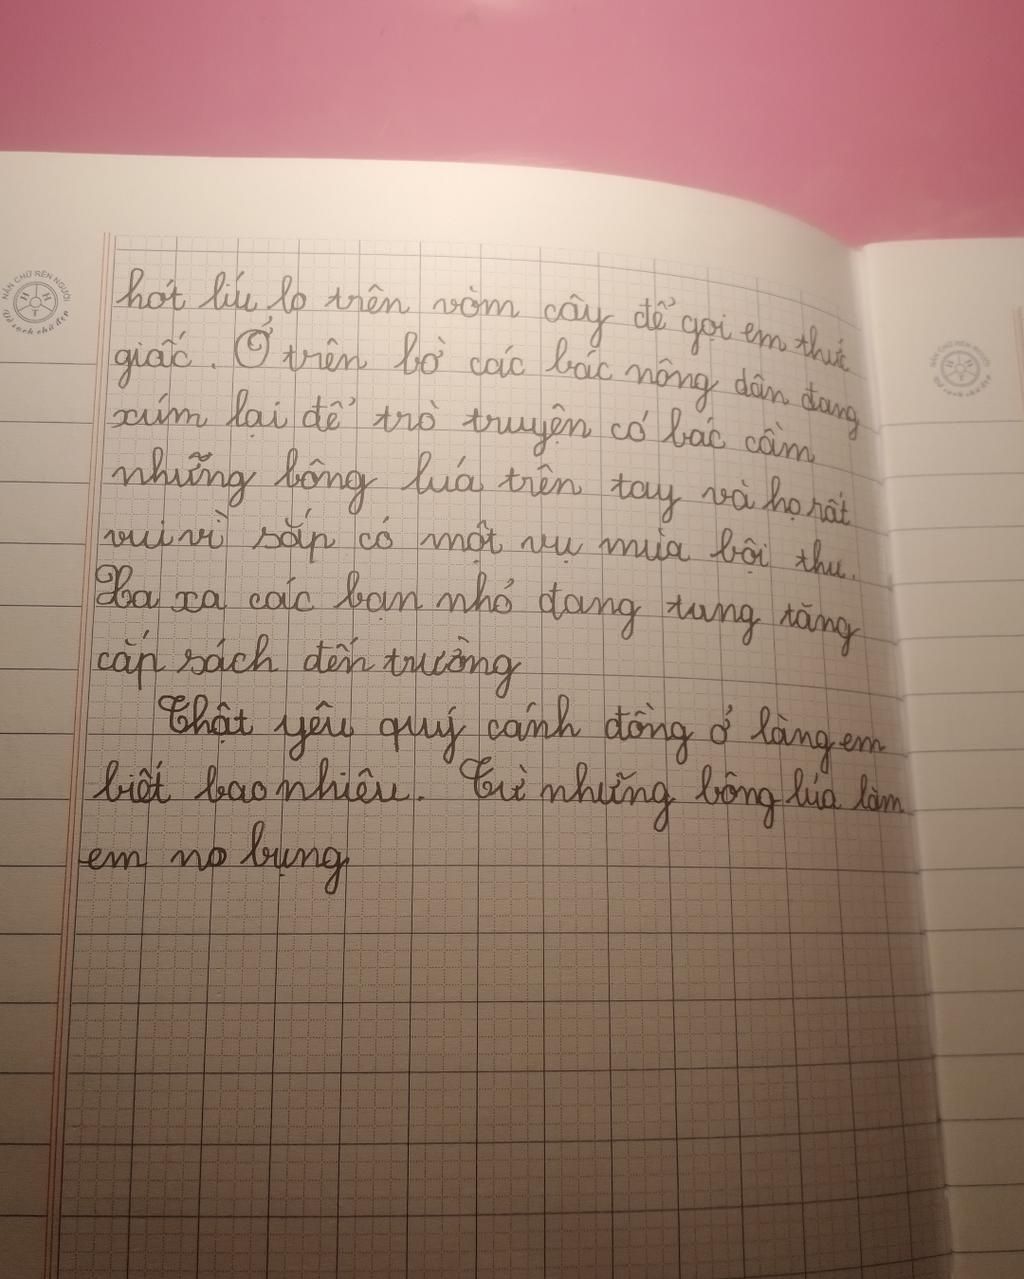 NẮN CHỮ RÈN NGƯỜI
Vở sạch chữ đẹp
hót líu lo trên vòm cây để gọi em thức
giấc. Ở trên bờ các bác nông dân đang
xúm lại để trò truyện có bác cầm
những bông lúa trên tay và họ rất
vui vì sắp có một vụ mùa bội thu.
Xa xa các bạn nhỏ đang tung tăng
cắp sách đến trường
Thật yêu quý cánh đồng ở làng em
biết bao nhiêu. Từ những bông lúa làm
em no bụng